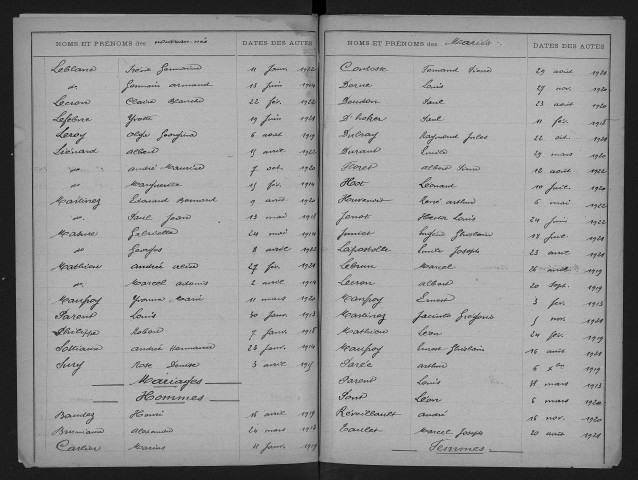 NOMS ET PRÉNOMS des nouveau-nés DATES DES ACTES
Leblanc Irénée Germond 11 janv. 1922
do Germain armand 13 juin 1914
Lecron Claire Blanche 22 fév. 1922
Lefebvre Yvette 19 juin 1921
Leroy Olga Georgina 6 août 1919
Liénard Albert 15 avril 1922
do André Maurice 7 oct. 1920
do Marguerite 15 fév. 1914
Martinez Edouard Bernard 9 avril 1920
do Paul Jean 13 mai 1918
Mature Gabrielle 24 mai 1914
do Georges 8 avril 1922
Mathieu André 27 fév. 1921
do Marcel 2 avril 1914
Maufroy Yvonne Marie 11 mars 1920
Parent Louis 30 janv. 1913
Philippe Robert 7 janv. 1918
Sottiaux André 23 janv. 1914
Sury Rose Denise 3 avril
Mariages
Hommes
Baudez Henri 16 avril 1919
Alexandre 24 mars 1913
Cartier Marius 11 janv. 1919
NOMS ET PRÉNOMS des Mariés DATES DES ACTES
Fernand 29 août 1921
Louis 27 nov. 1920
Doudon Paul 23 août 1920
Paul 11 fév. 1918
Raymond Jules 22 oct. 1921
Durant Emile 29 mars 1920
Floret Albert 12 août 1922
Host Léonard 10 juil. 1920
René Arthur 6 mai 1922
Jenot Louis 24 juin 1922
Ghislain 18 juil. 1921
Lapostolle Emile Joseph 23 avril 1921
Lebrun Marcel 26 avril 1919
Lecron Albert 20 sept. 1919
Maufroy Ernest 3 fév. 1913
Martinez 5 nov. 1921
Mathieu Léon 24 fév. 1919
Maufroy Ernest Ghislain 16 août 1921
Parée Arthur 6 Xbre 1919
Parent Louis 18 mars 1913
Pont Léon 6 mars 1920
Réveillault André 16 nov. 1920
Taulet Marcel Joseph 20 août 1921
Femmes